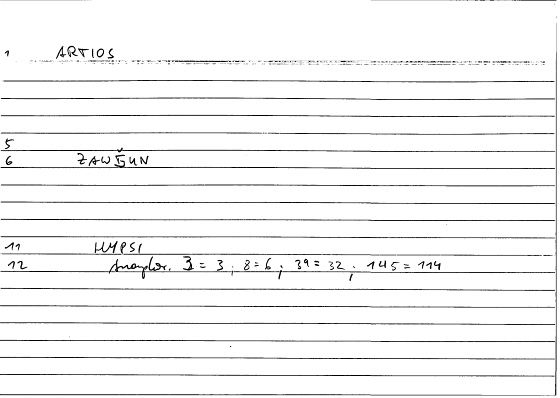 1 ARTIOS
5
6
11 HYPSI
12 3 = 3 ; 8 = 6 ; 39 = 32 ; 145 = 114